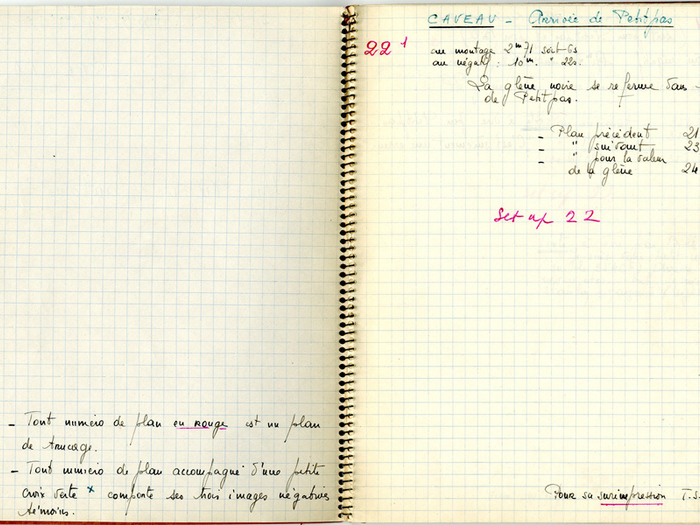 - Tout numéro de plan en rouge est un plan
de trucage.
- Tout numéro de plan accompagné d'une petite
croix verte x comporte ses trois images négatives
témoins.
CAVEAU - Arrivée de Petitpas
22 1
au montage 2m71 soit 6s
au négatif : 10m. " 22s.
La glène noire se referme dans
de Petitpas.
- Plan précédent 21
- " suivant 23
- " pour la valeur
de la glène 24
Set up 22
Pour sa surimpression T.S.